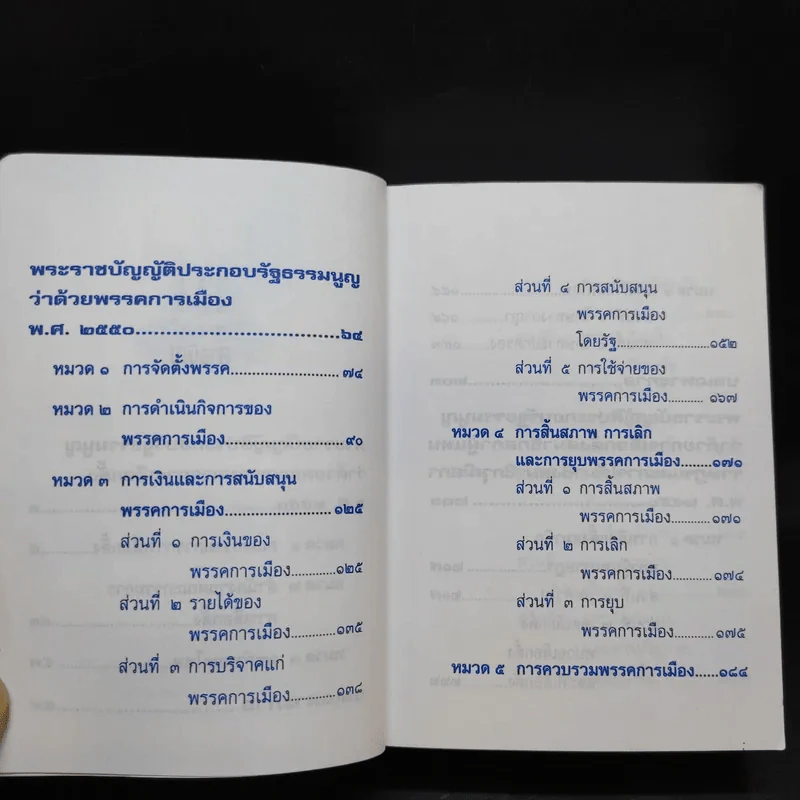 พระราชบัญญัติประกอบรัฐธรรมนูญ
ว่าด้วยพรรคการเมือง
พ.ศ. ๒๕๕๐.................................๖๔
หมวด ๑ การจัดตั้งพรรค......................๗๔
หมวด ๒ การดำเนินกิจการของ
พรรคการเมือง......................๙๐
หมวด ๓ การเงินและการสนับสนุน
พรรคการเมือง......................๑๒๕
ส่วนที่ ๑ การเงินของ
พรรคการเมือง............๑๒๕
ส่วนที่ ๒ รายได้ของ
พรรคการเมือง............๑๓๕
ส่วนที่ ๓ การบริจาคแก่
พรรคการเมือง............๑๓๘
ส่วนที่ ๔ การสนับสนุน
พรรคการเมือง
โดยรัฐ......................๑๕๒
ส่วนที่ ๕ การใช้จ่ายของ
พรรคการเมือง......... ๑๖๗
หมวด ๔ การสิ้นสภาพ การเลิก
และการยุบพรรคการเมือง.......๑๗๑
ส่วนที่ ๑ การสิ้นสภาพ
พรรคการเมือง...........๑๗๑
ส่วนที่ ๒ การเลิก
พรรคการเมือง...........๑๗๔
ส่วนที่ ๓ การยุบ
พรรคการเมือง...........๑๗๕
หมวด ๕ การควบรวมพรรคการเมือง......๑๘๔